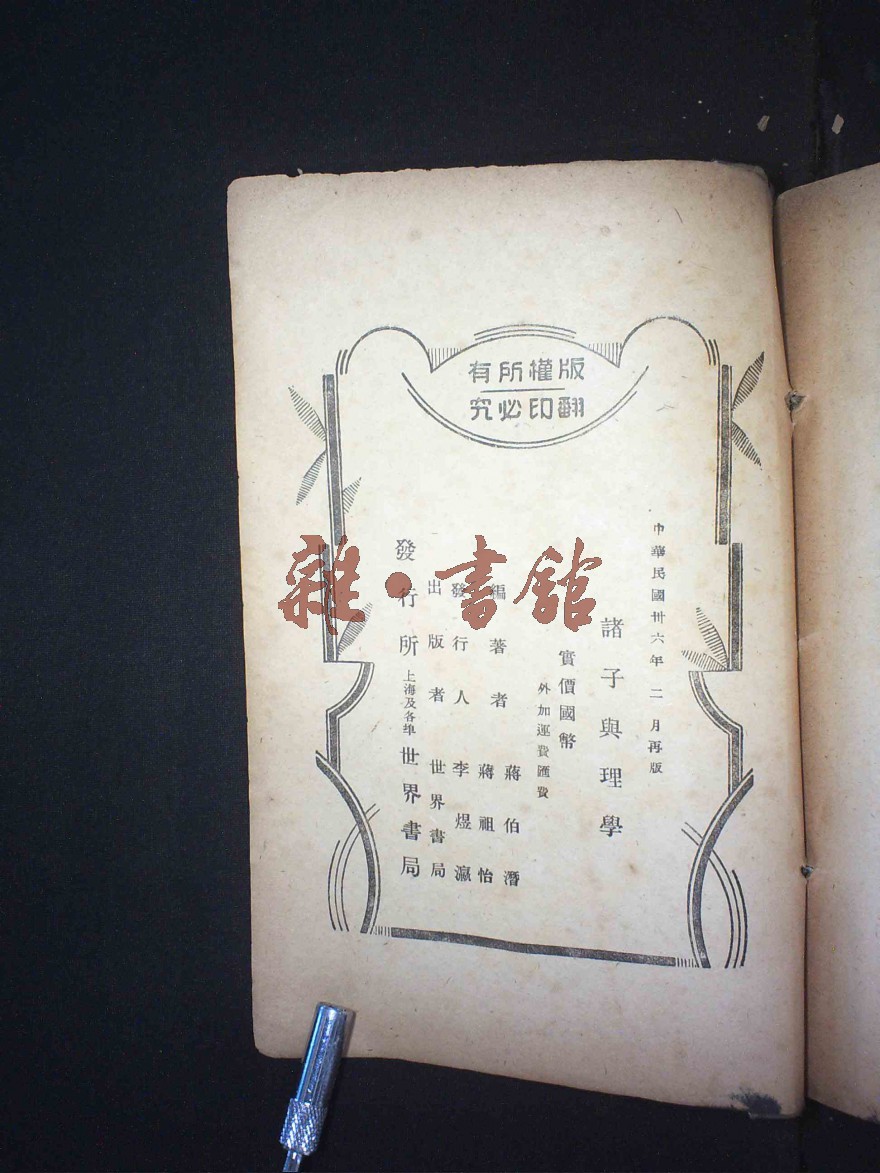 版權所有
翻印必究
中華民國卅六年二月再版
諸子與理學
實價國幣
外加運費匯費
編著者 蔣伯潛
蔣祖怡
發行人 李煜瀛
出版者 世界書局
發行所 上海及各埠 世界書局
雜·書館